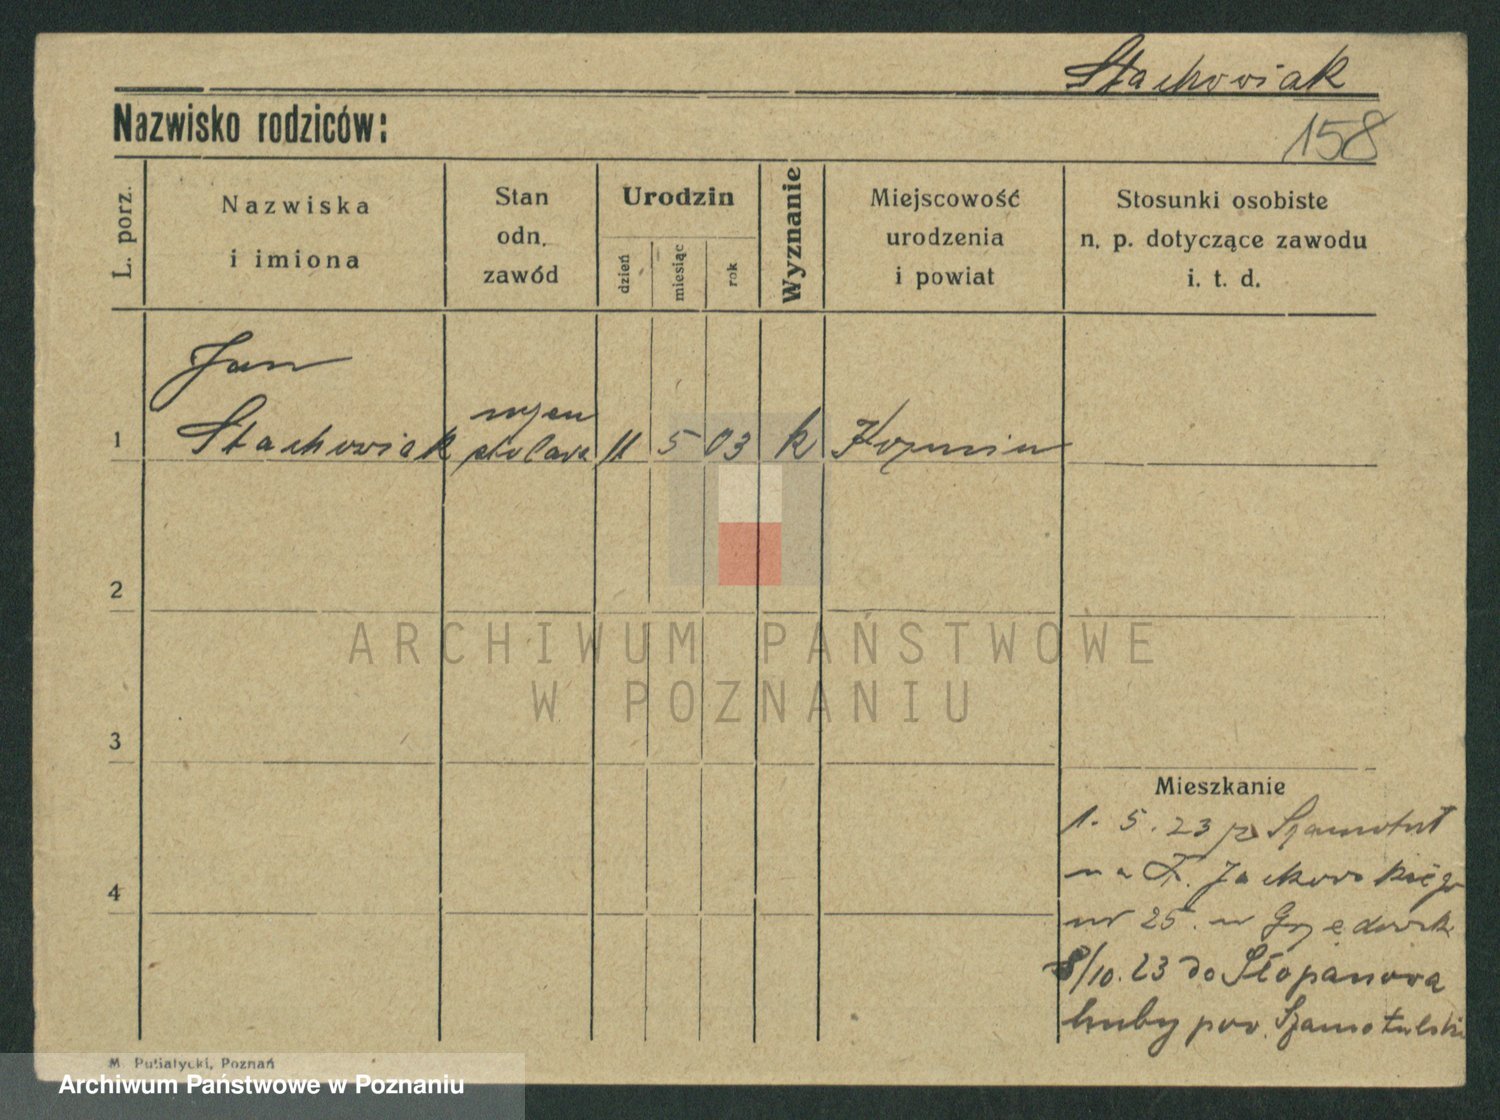 Stachowiak
Nazwisko rodziców:
158
L. porz.
Nazwiska
i imiona
Stan
odn.
zawód
Urodzin
dzień
miesiąc
rok
Wyznanie
Miejscowość
urodzenia
i powiat
Stosunki osobiste
n. p. dotyczące zawodu
i. t. d.
Jan
1 Stachowiak stolars 11 5 03 k Kozmin
2
3
4
Mieszkanie
1. 5. 23 z Szamotuł
na F. Jackowskiego
nr 25. u
8/10. 23 do Słopanowa
huby pow. Szamotulski
ARCHIWUM PAŃSTWOWE
W POZNANIU
M. Putiatycki, Poznań
Archiwum Państwowe w Poznaniu